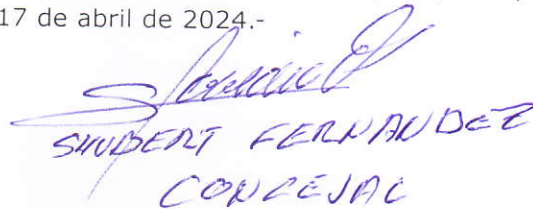 17 de abril de 2024.-
SHUBERT FERNANDEZ
CONCEJAL